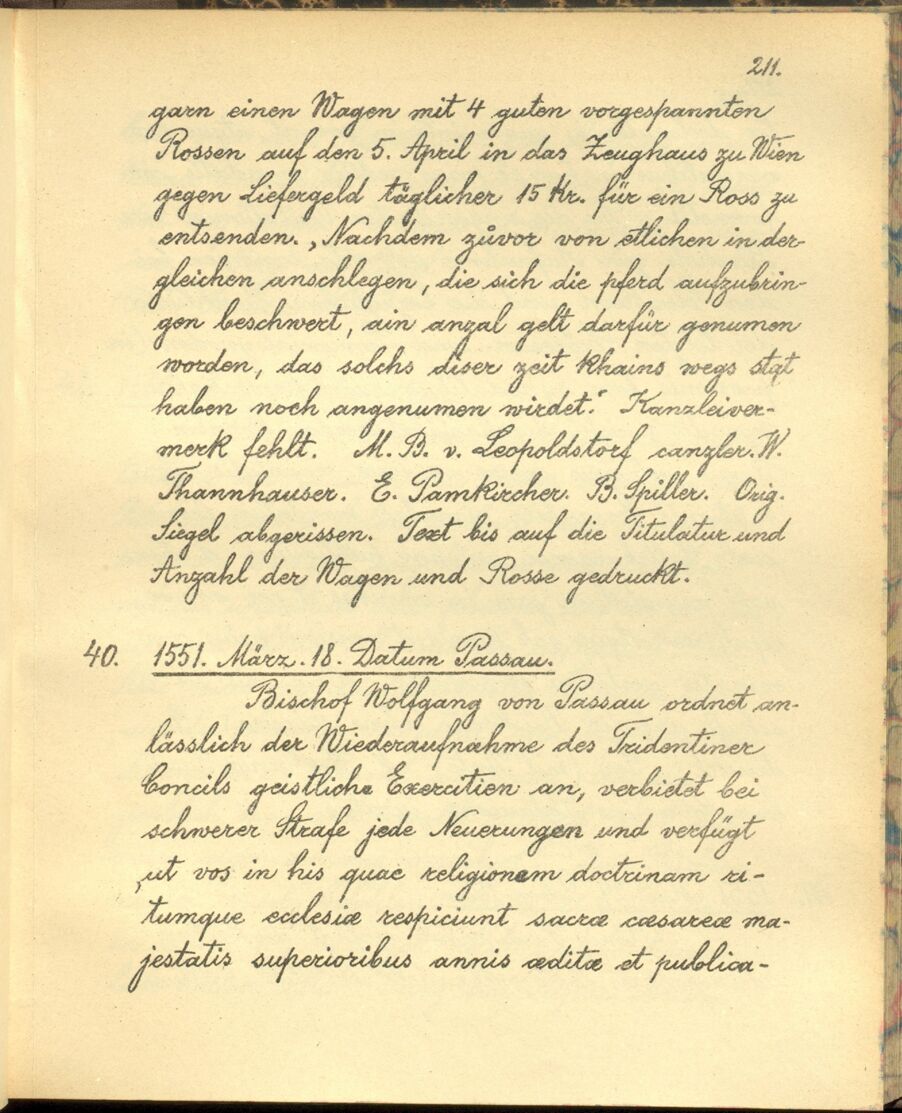 211.
garn einen Wagen mit 4 guten vorgespannten
Rossen auf den 5. April in das Zeughaus zu Wien
gegen Liefergeld täglicher 15 Kr. für ein Ross zu
entsenden. „Nachdem zůvor von etlichen in der-
gleichen anschlegen, die sich die pferd aufzubrin-
gen beschwert, ain anzal gelt darfür genumen
worden, das solchs diser zeit khains wegs stat
haben noch angenumen wirdet.“ Kanzleiver-
merk fehlt. M. B. v. Leopoldstorf canzler. W.
Thannhauser. E. Pamkircher. B. Spiller. Orig.
Siegel abgerissen. Text bis auf die Titulatur und
Anzahl der Wagen und Rosse gedruckt.
40. 1551. März. 18. Datum Passau.
Bischof Wolfgang von Passau ordnet an-
lässlich der Wiederaufnahme des Tridentiner
Concils geistliche Exercitien an, verbietet bei
schwerer Strafe jede Neuerungen und verfügt
„ut vos in his quae religionem doctrinam ri-
tumque ecclesiæ respiciunt sacræ cæsareæ ma-
jestatis superioribus annis æditæ et publica-